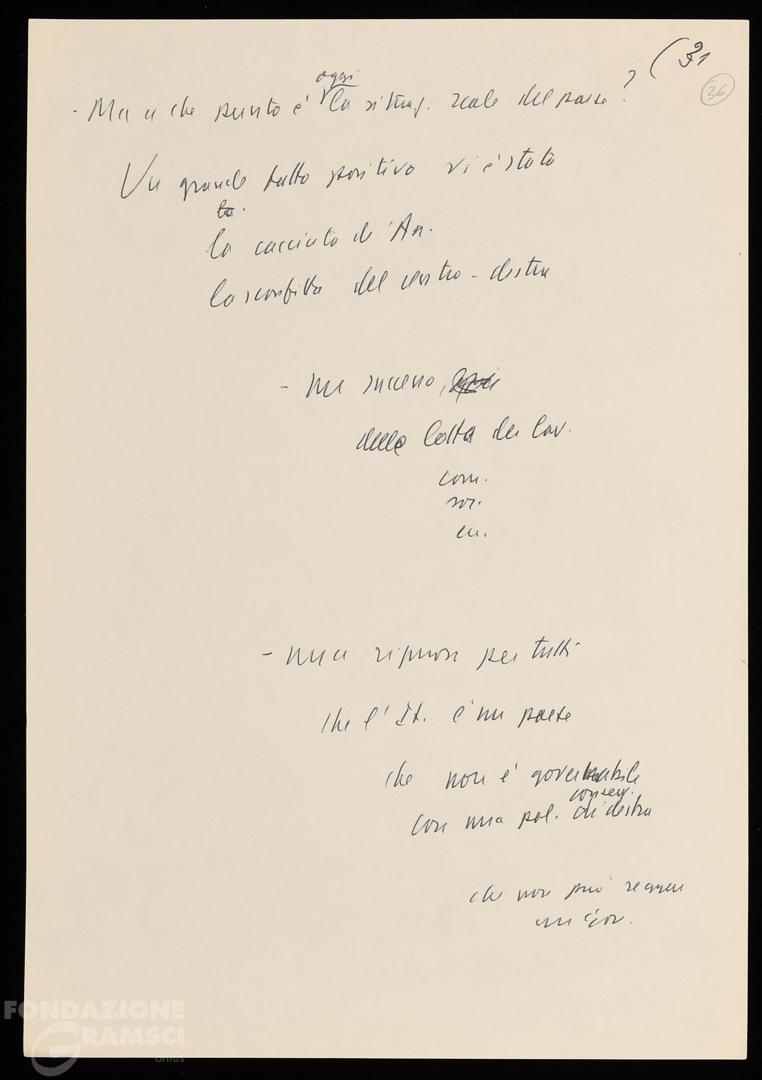 (31
36
oggi
- Ma a che punto è la situaz. reale del paese?
Un grande fatto positivo vi è stato
la.
la cacciata di An.
la sconfitta del centro-destra
- un successo,
della lotta dei lav.
com.
soc.
- una riprova per tutti
che l'It. è un paese
che non è governabile
conserv.
con una pol. di destra
che non può reggere
un gov.
FONDAZIONE
GRAMSCI
onlus